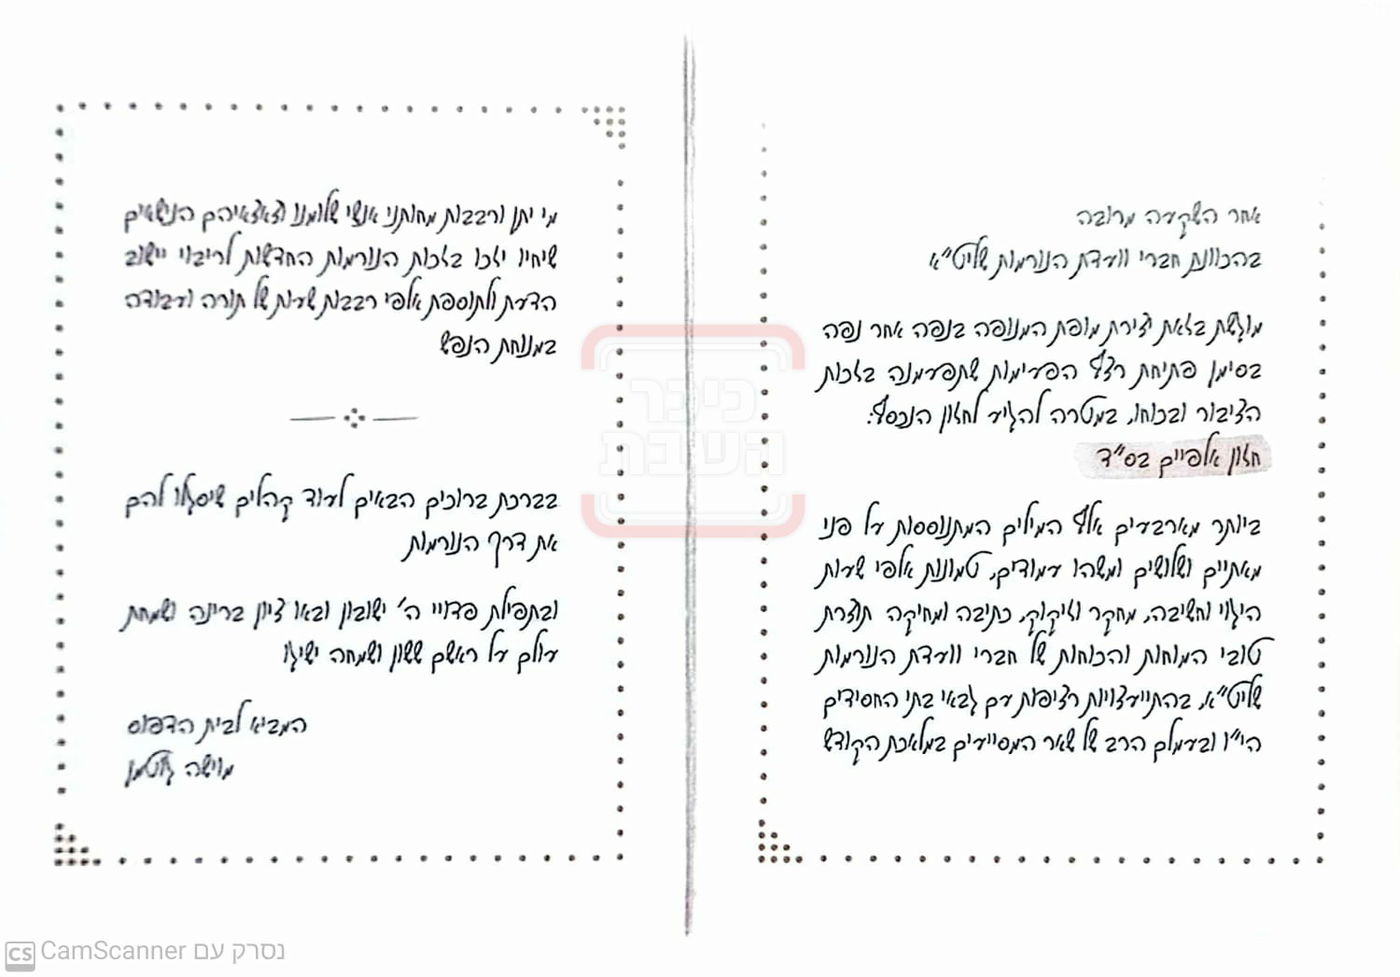 אחר השקעה מרובה
בהכוונת חברי וועדת הנורמות שליט״א
מוגשת בזאת יצירת מופת המנופה בנפה אחר נפה
בסימן פתיחת רצף הפעימות שתפעמנה בזכות
הציבור ובכוחו, במטרה להגיע לחזון הנכסף:
חזון אלפיים בס״ד
ביותר מארבעים אלף המילים המתנוססות על פני
מאתיים ושלושים ומשהו עמודים, טמונות אלפי שעות
היגוי וחשיבה, מחקר וזיקוק, כתיבה ומחיקה תוצרת
טובי המוחות והכוחות של חברי וועדת הנורמות
שליט״א, בהתייעצויות רציפות עם גבאי בתי החסידים
הי״ו ובעמלם הרב של שאר המסייעים במלאכת הקודש
מי יתן ורבבות מחותני אנשי שלומנו וצאצאיהם הנישאים
שיחיו יזכו בזכות הנורמות החדשות לריבוי יישוב
הדעת ולתוספת אלפי רבבות שעות של תורה ועבודה
במנוחת הנפש
בברכת ברוכים הבאים לעוד קהלים שיסגלו להם
את דרך הנורמות
ובתפילת פדויי ה׳ ישובון ובאו ציון ברינה ושמחת
עולם על ראשם ששון ושמחה ישיגו
המביא לבית הדפוס
מוישה גוטמן
כיכר
השבת
CS CamScanner נסרק עם